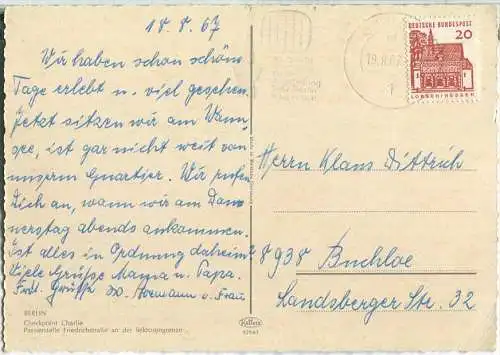 18.8.67
Wir haben schon schöne
Tage erlebt u. viel gesehen.
Jetzt sitzen wir am Wann-
see, ist gar nicht weit von
unserm Quartier. Wir rufen
Dich an, wann wir am Don-
nerstag abends ankommen.
Ist alles in Ordnung daheim?
Viele Grüße Mama u. Papa.
Frdl. Grüße Hermann u. Frau
BERLIN
Checkpoint Charlie
Passierstelle Friedrichstraße an der Sektorengrenze
Kellers
DEUTSCHE BUNDESPOST
20
LORSCH/HESSEN
Herrn Klaus Dittrich
8938 Buchloe
Landsberger Str. 32